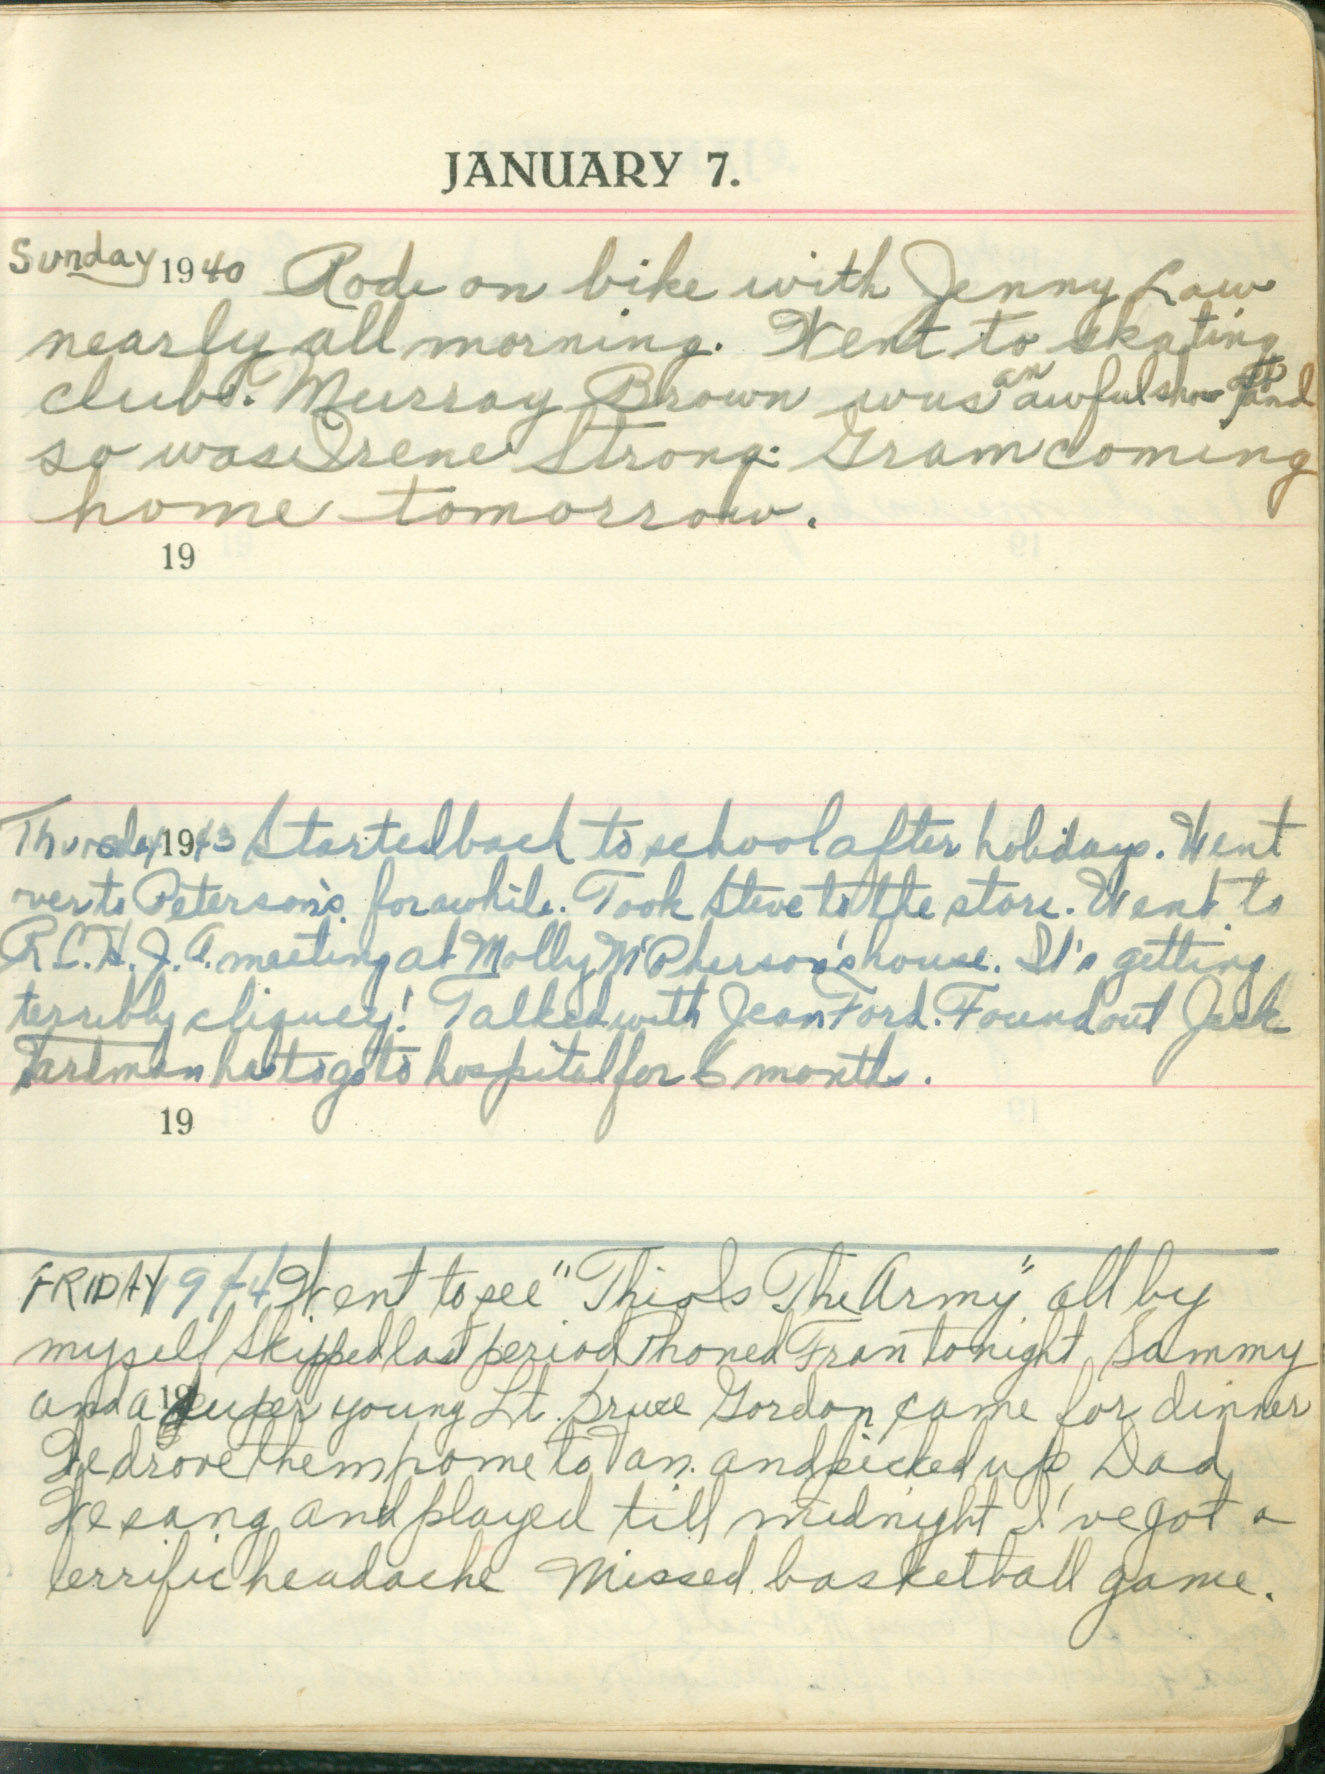 JANUARY 7.
Sunday 1940 Rode on bike with Jenny Law
nearly all morning. Went to skating
club. Murray Brown was an awful show off and
so was Irene Strong. Gram coming
home tomorrow.
19
Thursday 1943 Started back to school after holidays. Went
over to Peterson's for awhile. Took Steve to the store. Went to
R.C.H.J.A. meeting at Molly McPherson's house. It's getting
terribly cliquey! Talked with Jean Ford. Found out Jack
has to go to hospital for 6 months.
19
FRIDAY 1944 Went to see "This Is The Army" all by
myself Skipped last period Phoned Fran tonight Sammy
and a super young Lt. Bruce Gordon came for dinner
We drove them home to Van. and picked up Dad
We sang and played till midnight I've got a
terrific headache Missed basketball game.
19